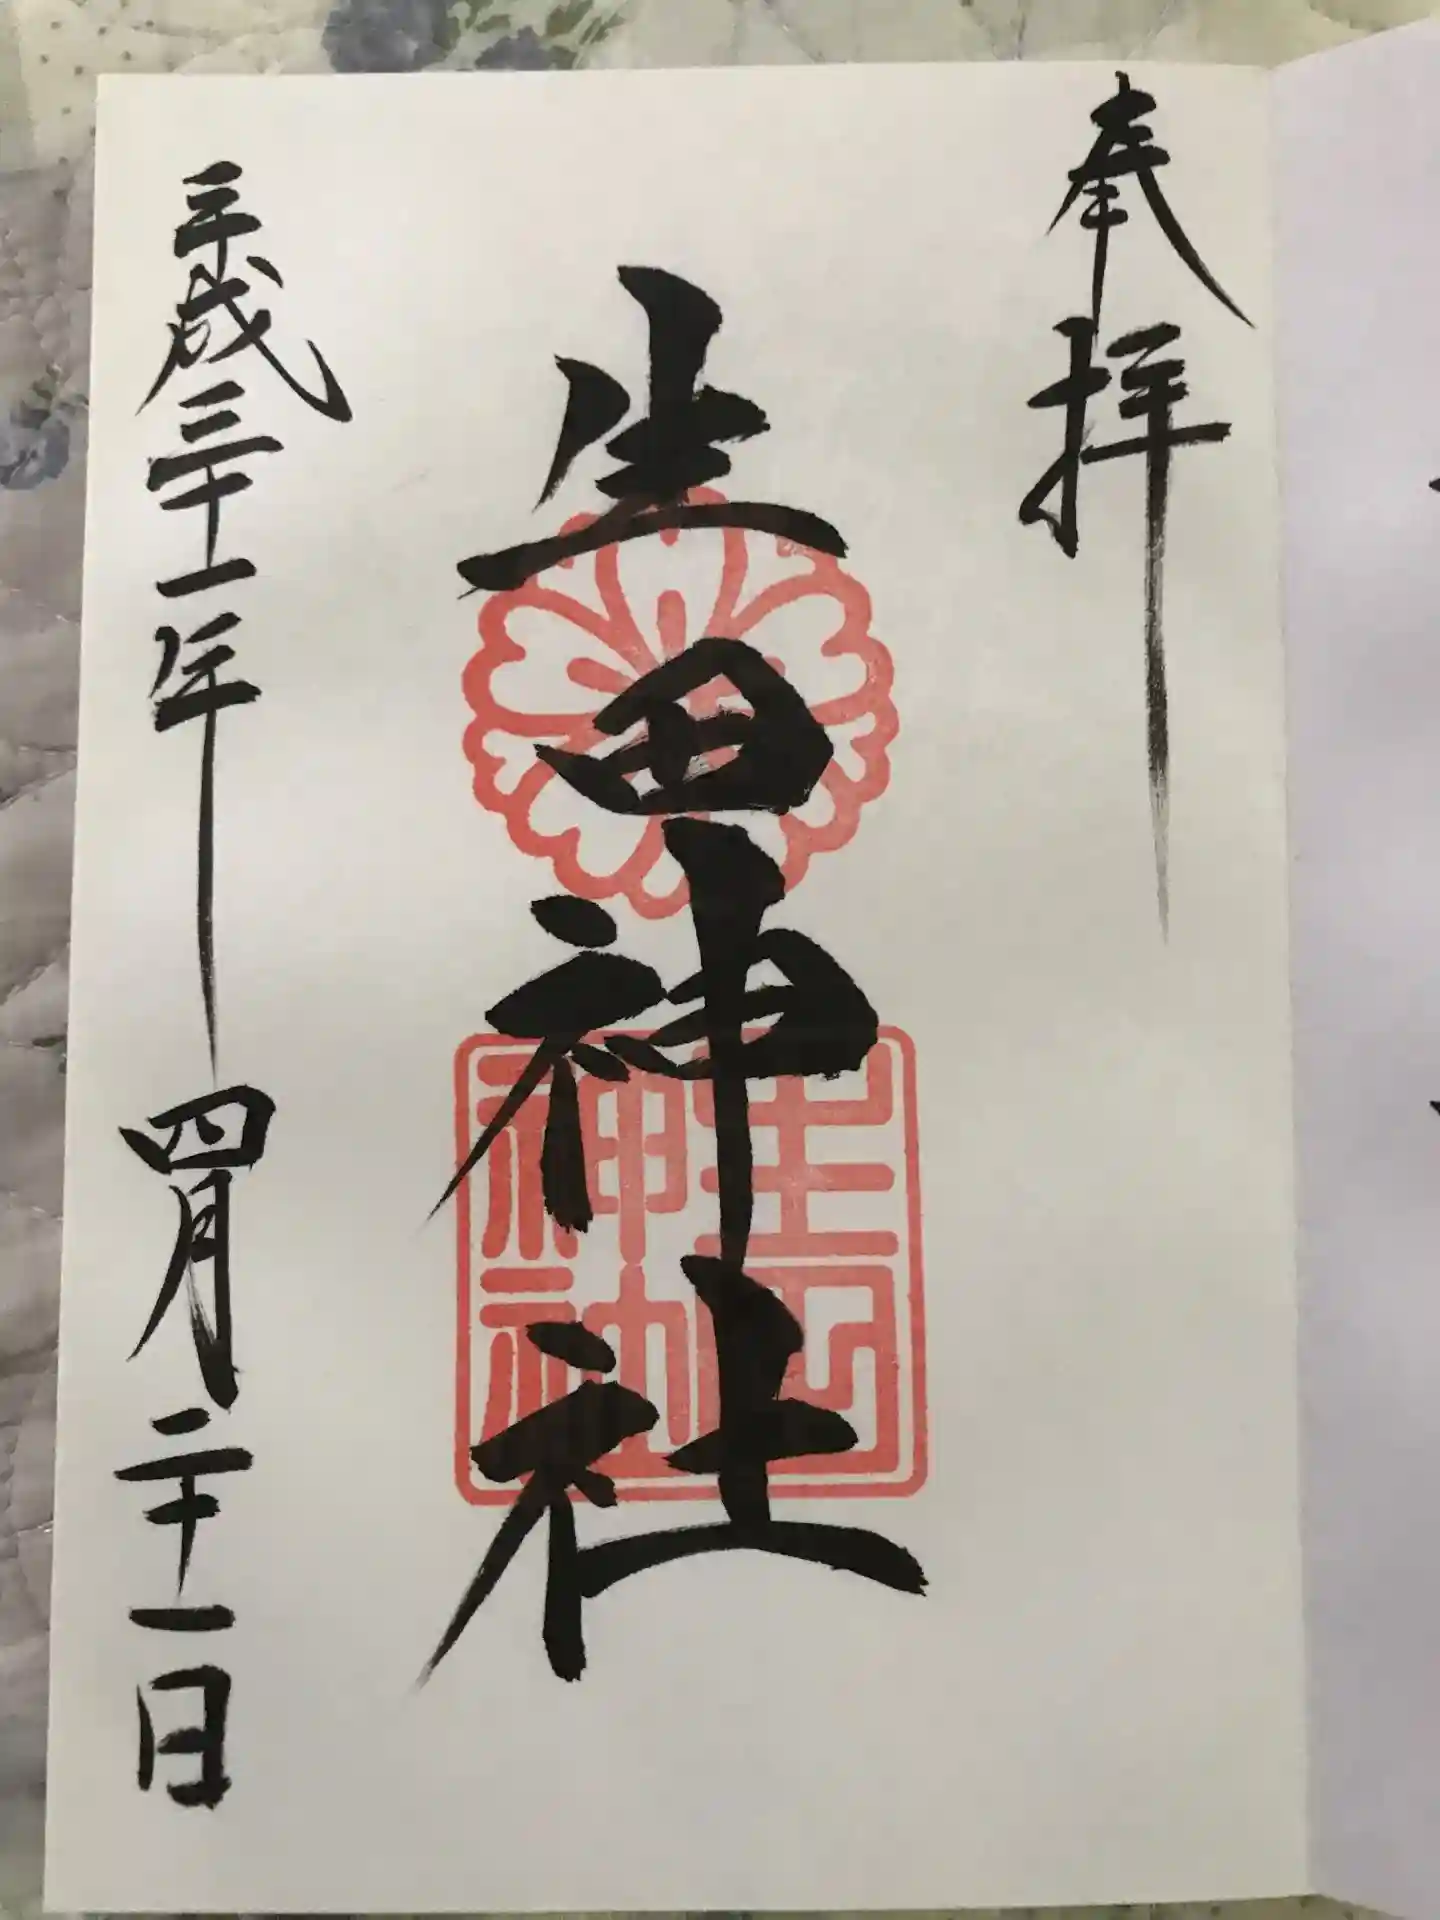 奉拝
生田神社
生田神社
平成三十一年 四月二十一日